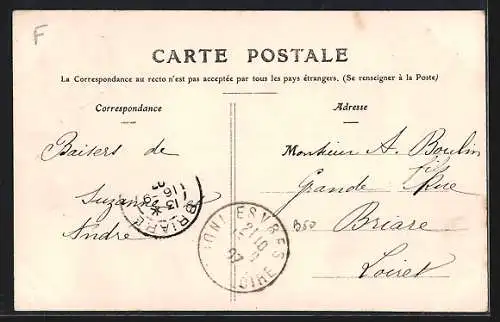 F
CARTE POSTALE
La Correspondance au recto n'est pas acceptée par tous les pays étrangers. (Se renseigner à la Poste)
Correspondance
Baisers de
Suzanne et
André
Adresse
Monsieur A. Boulin fils
Grande Rue
Briare
Loiret
B50
BRIARE
13